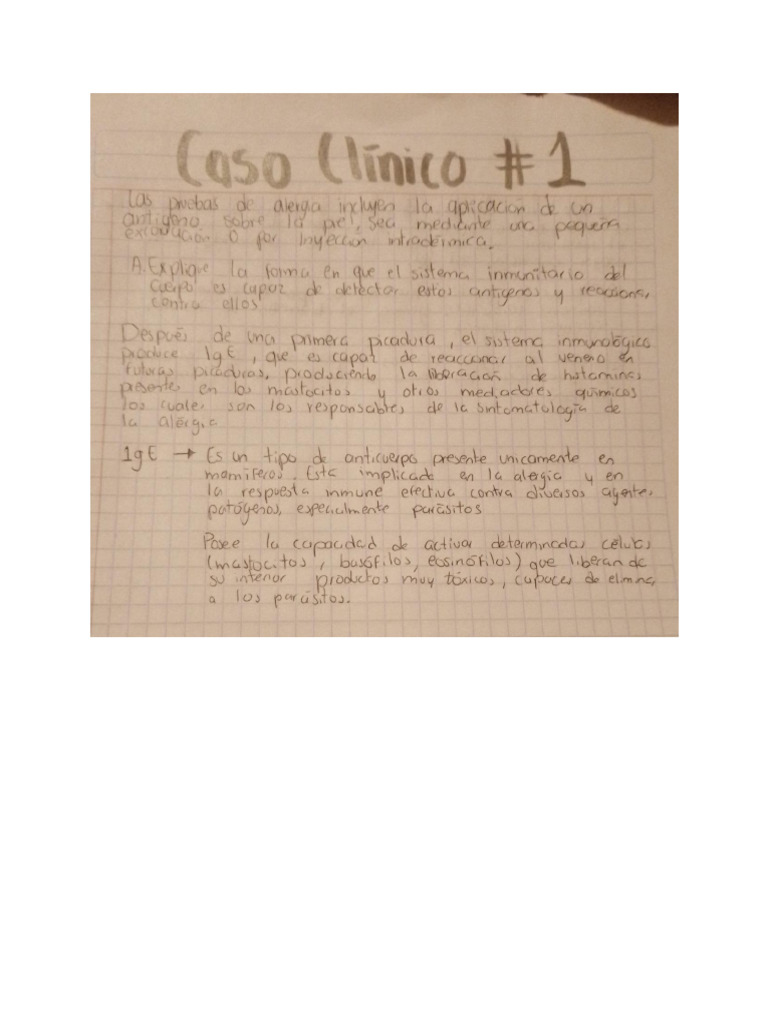 Caso Clínico # 1
Las pruebas de alergia incluyen la aplicación de un
antígeno sobre la piel, sea mediante una pequeña
excavación o por Inyección intradérmica.
A. Explique la forma en que el sistema inmunitario del
cuerpo es capaz de detectar estos antígenos y reacciona,
contra ellos
Después de una primera picadura, el sistema inmunológico
produce IgE, que es capaz de reaccionar al veneno en
futuras picaduras, produciendo la liberación de histaminas
presentes en los mastocitos y otros mediadores químicos
los cuales son los responsables de la sintomatología de
la alérgia
IgE → Es un tipo de anticuerpo presente unicamente en
mamíferos. Está implicado en la alergia y en
la respuesta inmune efectiva contra diversos agentes
patógenos, especialmente parásitos
Posee la capacidad de activar determinadas células
(mastocitos, basófilos, eosinófilos) que liberan de
su interior productos muy tóxicos, capaces de elimina
a los parásitos.